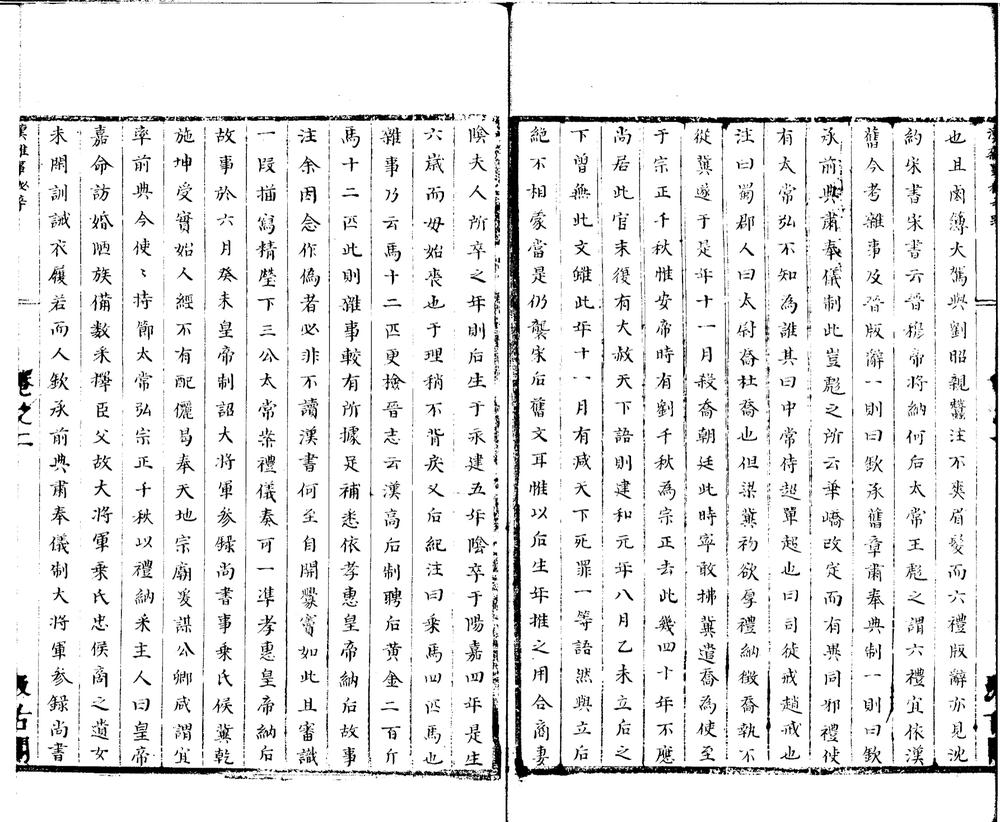 也且鹵簿大駕與劉昭親蠶注不爽眉髮而六禮版辭亦見沈
約宋書宋書云晉穆帝將納何后太常王彪之謂六禮宜依漢
舊今考雜事及晉版辭一則曰欽承舊章肅奉典制一則曰欽
承前典肅奉儀制此豈彪之所云華嶠改定而有異同邪禮使
有太常弘不知為誰其曰中常侍超單超也曰司徒戒趙戒也
注曰蜀郡人曰太尉喬杜喬也但梁冀初欲厚禮納徵喬執不
從冀遂于是年十一月殺喬朝廷此時寧敢拂冀遣喬為使至
于宗正千秋惟安帝時有劉千秋為宗正去此幾四十年不應
尚居此官末復有大赦天下語則建和元年八月乙未立后之
下曾無此文雖此年十一月有減天下死罪一等語然與立后
絕不相蒙當是仍襲宋后舊文耳惟以后生年推之用合商妻
陰夫人所卒之年則后生于永建五年陰卒于陽嘉四年是生
六歲而母始喪也于理稍不背戾又后紀注曰乘馬四匹馬也
雜事乃云馬十二匹更撿晉志云漢高后制聘后黃金二百斤
馬十二匹此則雜事較有所據足補悉依孝惠皇帝納后故事
注余因念作偽者必非不讀漢書何至自開釁竇如此且審識
一段描寫精瑩下三公太常案禮儀奏可一準孝惠皇帝納后
故事於六月癸未皇帝制詔大將軍參錄尚書事乘氏侯冀乾
施坤受實始人經不有配儷曷奉天地宗廟爰謀公卿咸謂宜
率前典今使〻持節太常弘宗正千秋以禮納采主人曰皇帝
嘉命訪婚陋族備數采擇臣父故大將軍乘氏忠侯商之遺女
未閑訓誡衣履若而人欽承前典肅奉儀制大將軍參錄尚書
漢雜事秘辛
卷之二
汲古閣